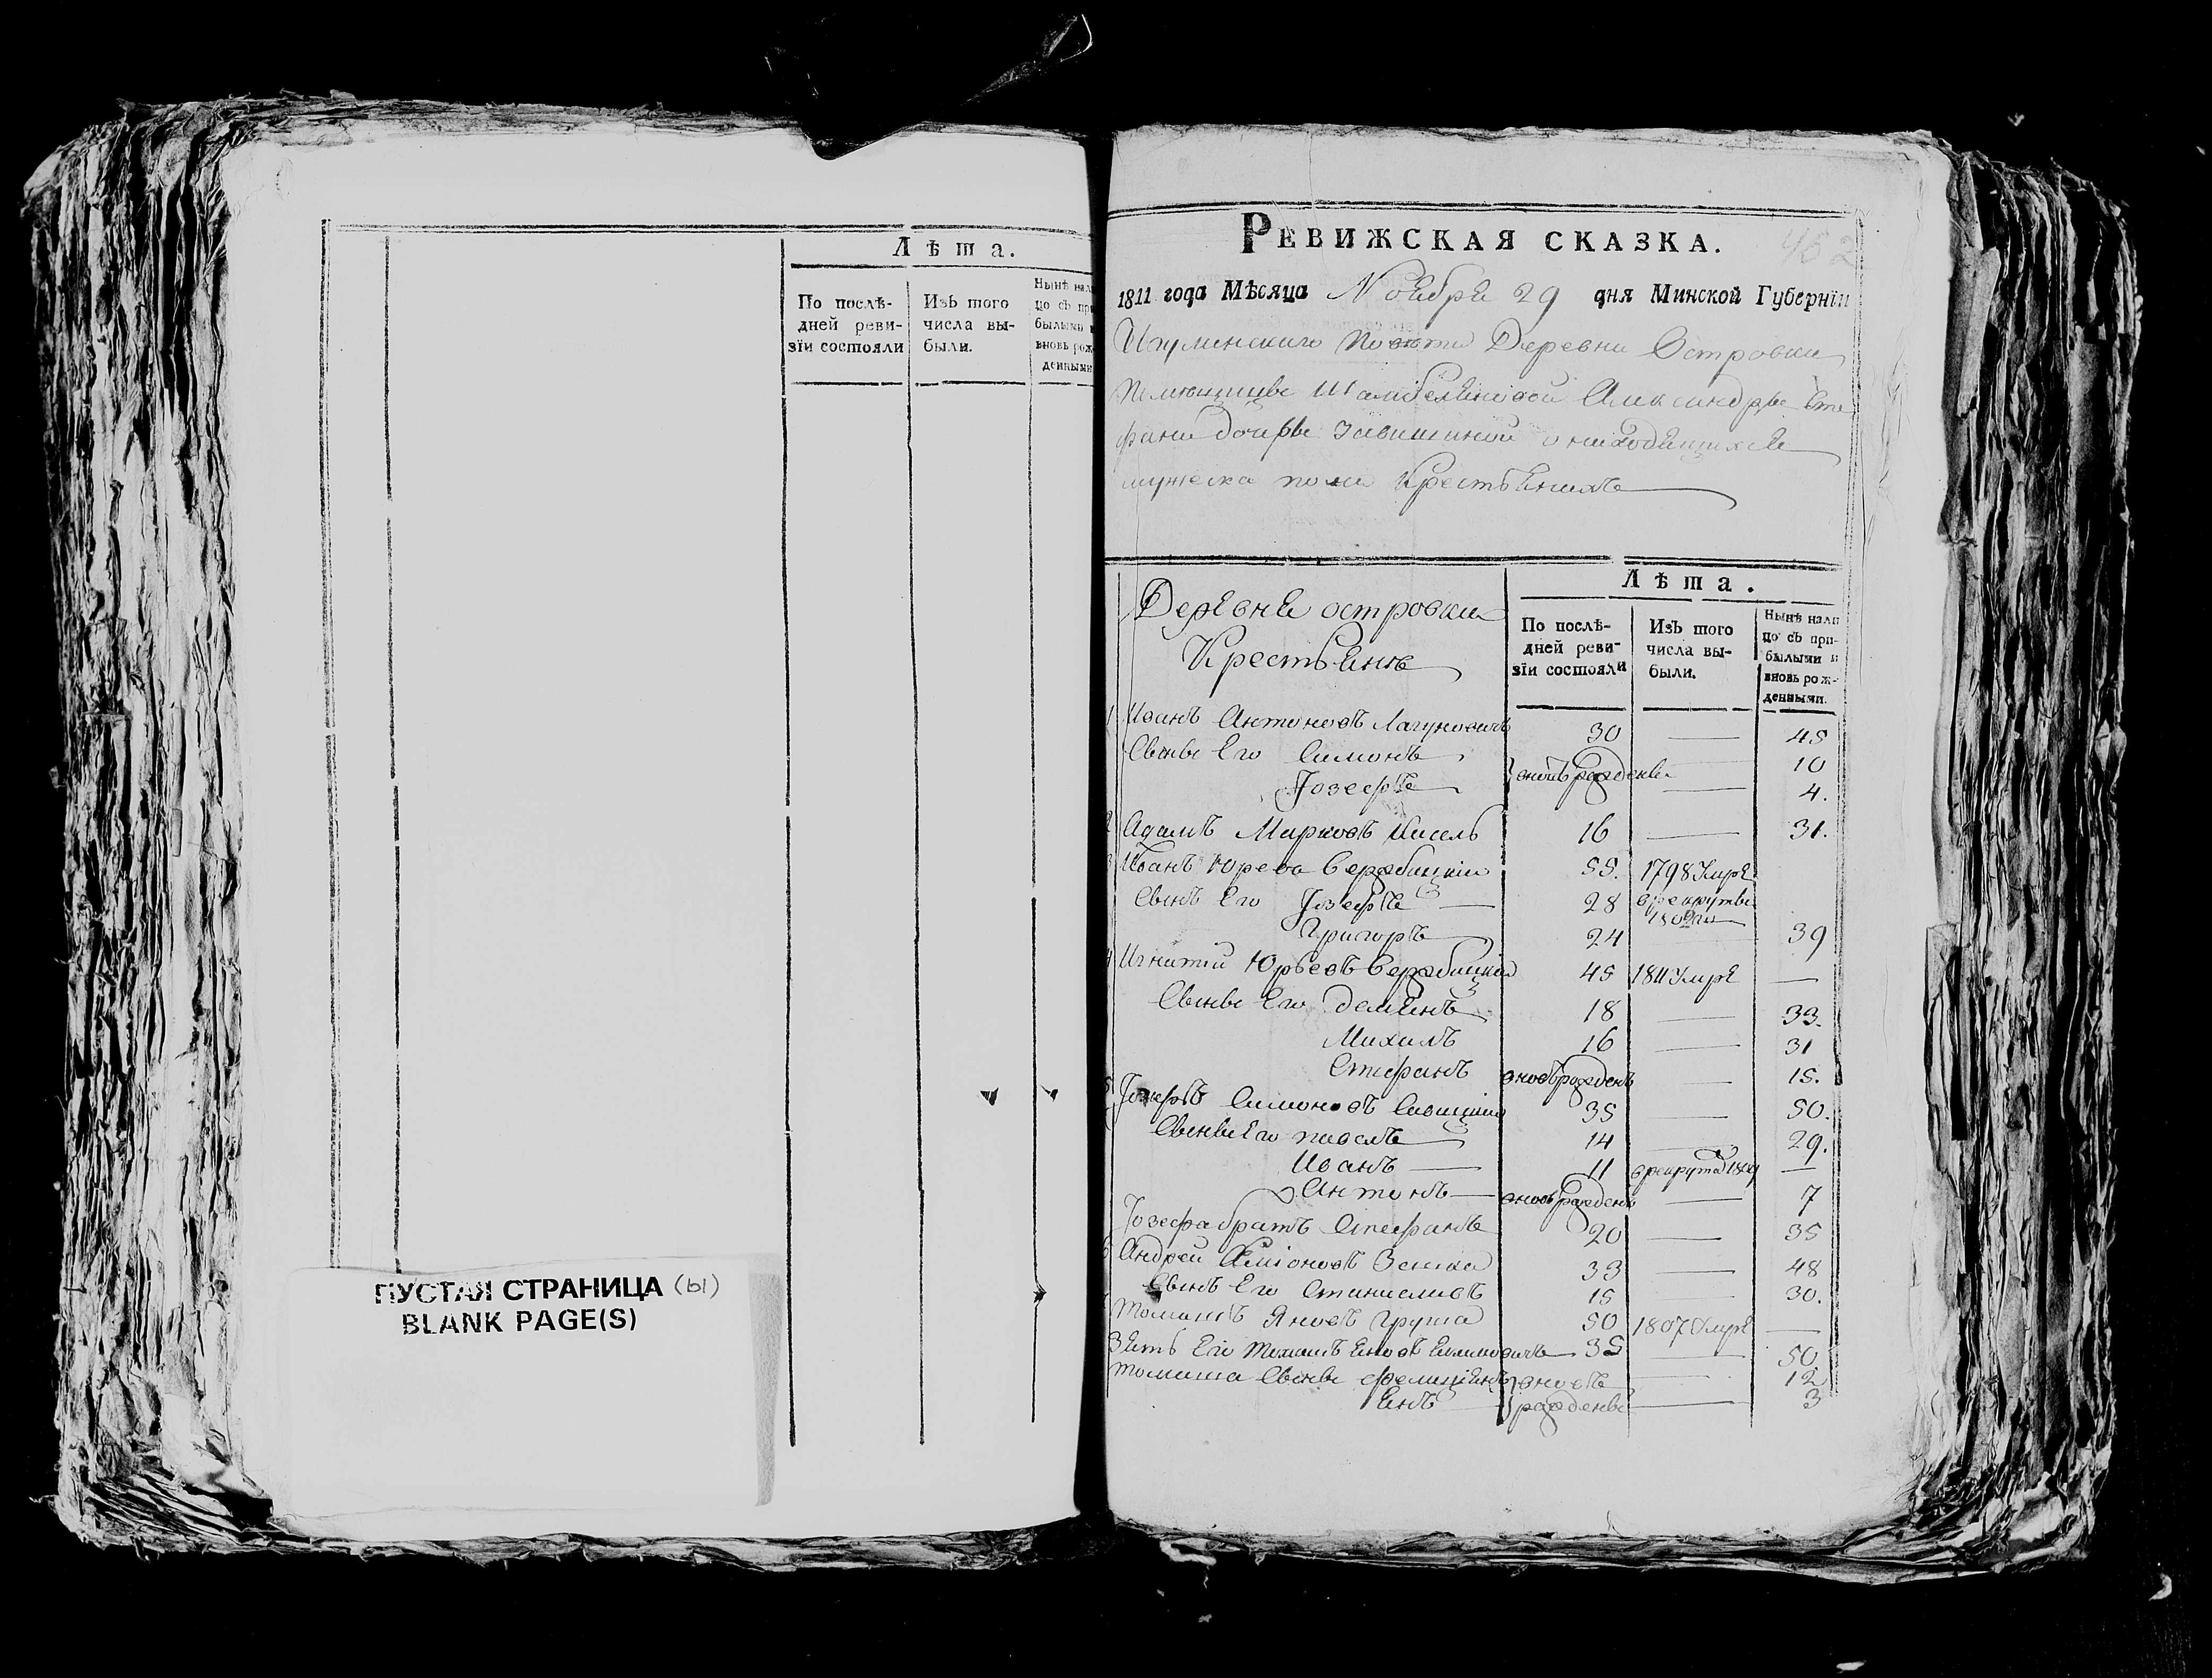 Лѣта.
По послѣ-
дней реви-
зїи состояли
Изъ того
числа вы-
были.
Нынѣ нали
цо съ при
былыми и
вновь рож
денными
ПУСТАЯ СТРАНИЦА (Ы)
BLANK PAGE(S)
РЕВИЖСКАЯ СКАЗКА.
462
1811 года Мѣсяца Ноебре 29 дня Минской Губернїи
Игуменскаго Повѣта Деревни Островки
Александре Сте
фана дочере о находещихсе
мужеска пола Крестьенахъ
Лѣта.
Деревне островки
Крестьенъ
По послѣ-
дней реви-
зїи состояли
Изъ того
числа вы-
были.
Нынѣ нали
цо съ при-
былыми и
вновь рож-
денными.
1 Иванъ Антоновъ Лагуновичъ 30 — 45
Его Симонъ 10
Іозефъ — 4.
2 Адамъ Марковъ Кисель 16 — 31.
3 Иванъ Юрева 59. 1798 Умре
Сынъ Его Іозефъ — 28 в рекруты
Григоръ 24 — 39
4 Игнатий Юрьевъ 45 1811 Умре —
Его Демьенъ 18 — 33.
Михалъ 16 — 31
Стефанъ вновьрожденъ — 15.
5 Іозефъ Симоновъ Савицкий 35 — 50.
Его Павелъ 14 — 29.
Иванъ — 11 в рекруты 1809 —
Антонъ — вновьрожденъ — 7
Іозефа братъ Стефанъ 20 — 35
6 Андрей 33 — 48
Сынъ Его Станиславъ 15 — 30.
Томашъ Яновъ Груша 50 1807 Умре —
Зеть Его Томашъ Еновъ 35 — 50
Томаша Фелициенъ вновь — 12
Енъ рожденые — 3